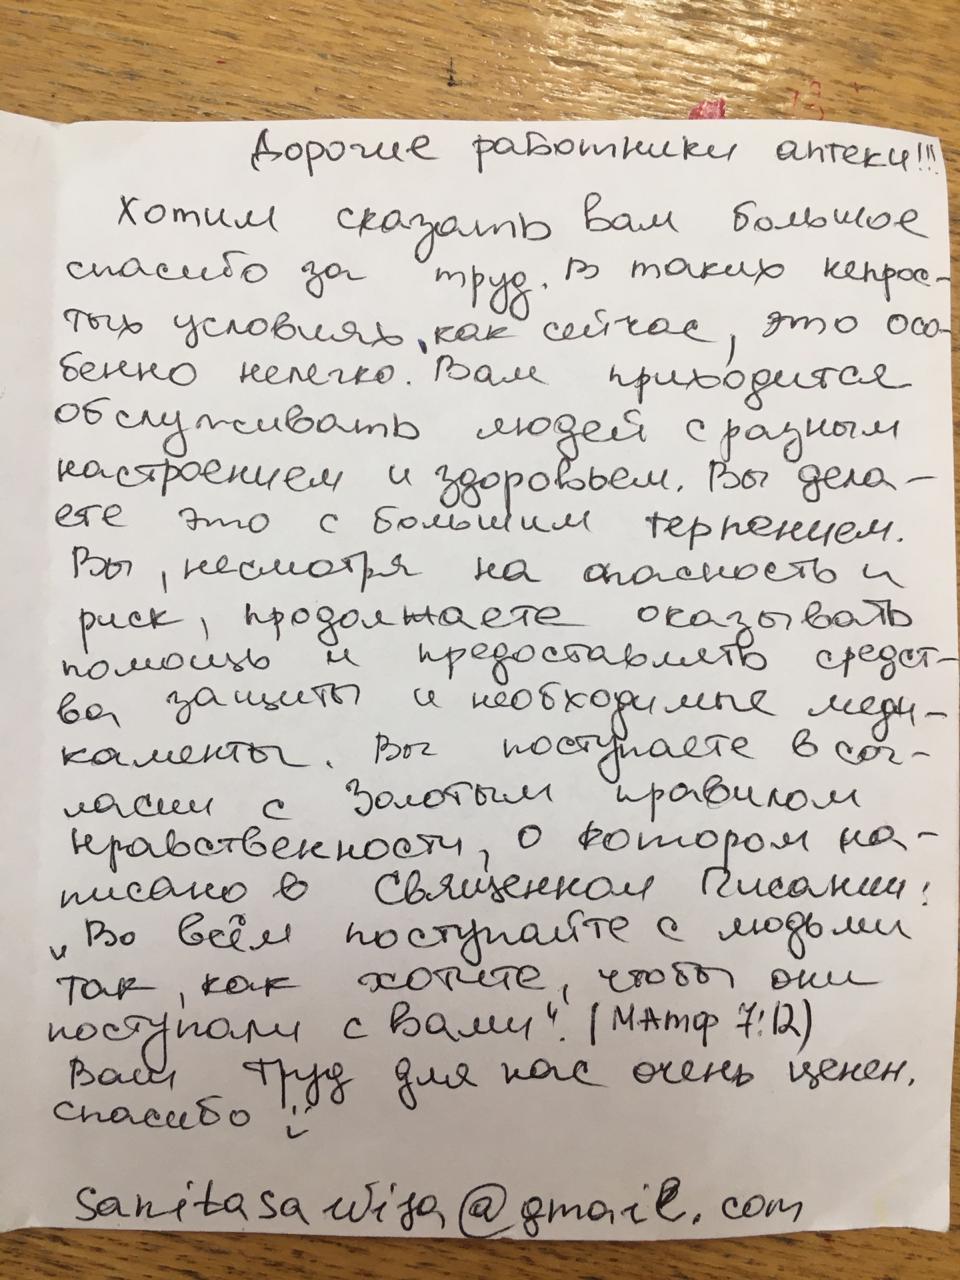 Дорогие работники аптеки!!!
Хотим сказать Вам большое
спасибо за труд. В таких непрос-
тых условиях, как сейчас, это осо-
бенно нелегко. Вам приходится
обслуживать людей с разным
настроением и здоровьем. Вы дела-
ете это с большим терпением.
Вы, несмотря на опасность и
риск, продолжаете оказывать
помощь и предоставлять средст-
ва защиты и необходимые меди-
каменты. Вы поступаете в сог-
ласии с Золотым правилом
нравственности, о котором на-
писано в Священном Писании:
„Во всём поступайте с людьми
так, как хотите, чтобы они
поступали с вами“. (Матф 7:12)
Ваш труд для нас очень ценен.
Спасибо :)
@gmail.com